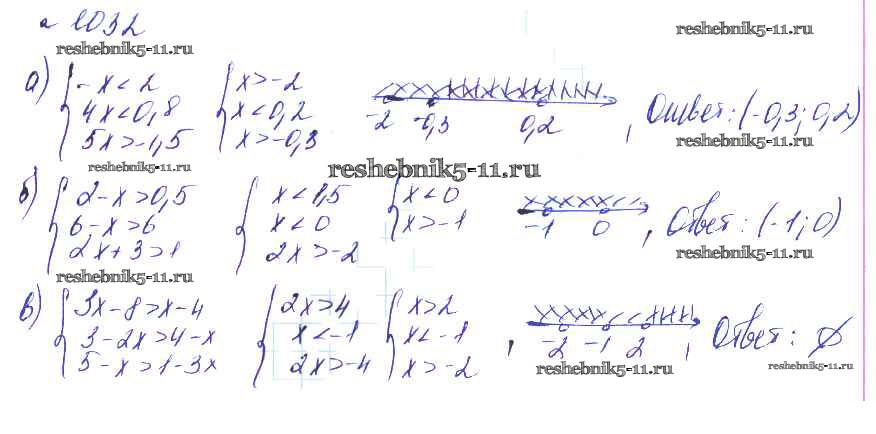 № 1032
reshebnik5-11.ru
reshebnik5-11.ru
а) { -x < 2 { x > -2
4x < 0,8 x < 0,2
5x > -1,5 x > -0,3
-2 -0,3 0,2 , Ответ: (-0,3; 0,2)
reshebnik5-11.ru
reshebnik5-11.ru
reshebnik5-11.ru
б) { 2-x > 0,5 { x < 1,5 { x < 0
6-x > 6 x < 0 x > -1
2x+3 > 1 2x > -2
-1 0 , Ответ: (-1; 0)
reshebnik5-11.ru
reshebnik5-11.ru
в) { 3x-8 > x-4 { 2x > 4 { x > 2
3-2x > 4-x x < -1 x < -1
5-x > 1-3x 2x > -4 x > -2
, -2 -1 2 , Ответ: ∅
reshebnik5-11.ru
reshebnik5-11.ru